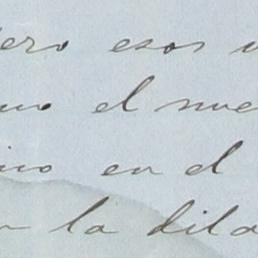 ero esos
el nue
en el
la dila